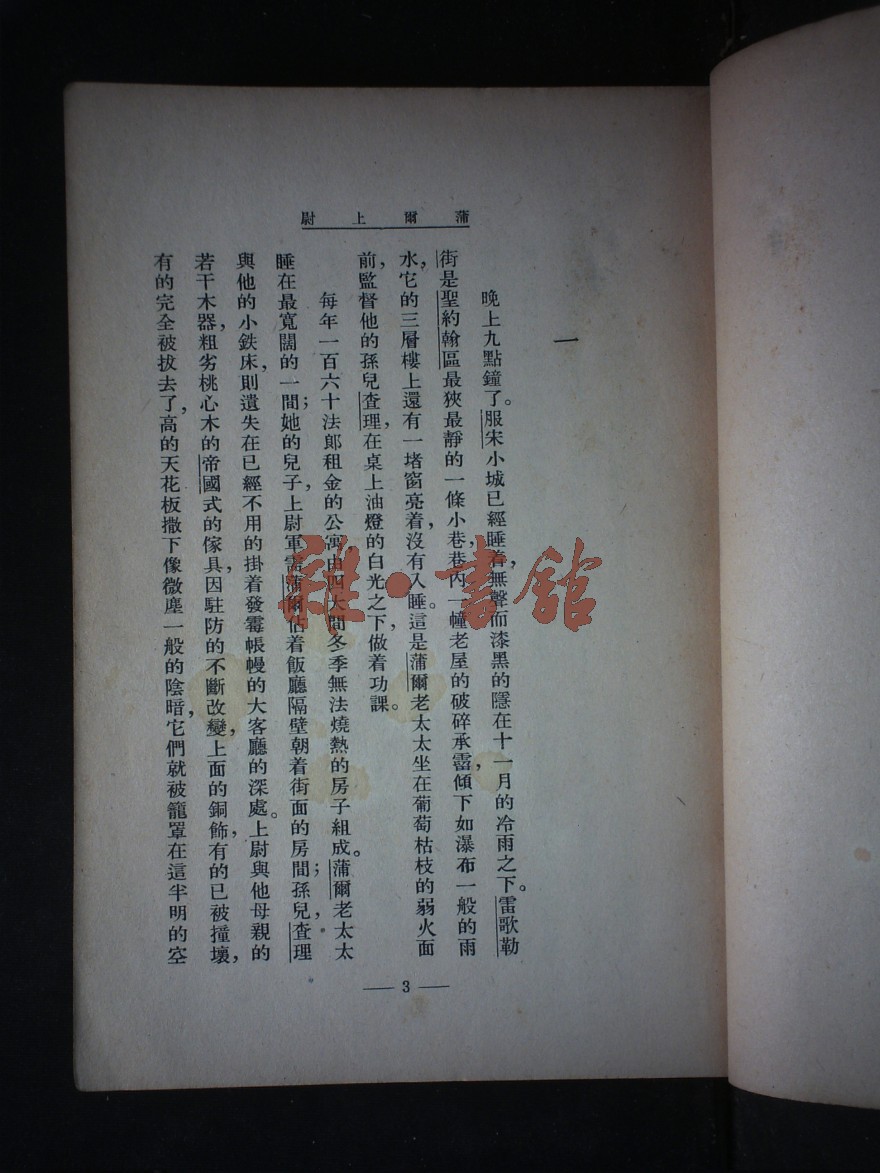 蒲爾上尉
一
晚上九點鐘了。服宋小城已經睡着，無聲而漆黑的隱在十一月的冷雨之下。雷歌勒
街是聖約翰區最狹最靜的一條小巷，巷內一幢老屋的破碎承霤，傾下如瀑布一般的雨
水，它的三層樓上還有一堵窗亮着，沒有入睡。這是蒲爾老太太坐在葡萄枯枝的弱火面
前，監督他的孫兒查理，在桌上油燈的白光之下，做着功課。
每年一百六十法郎租金的公寓，由四大間冬季無法燒熱的房子組成。蒲爾老太太
睡在最寬闊的一間；她的兒子，上尉軍需蒲爾佔着飯廳隔壁朝着街面的房間；孫兒，查理
與他的小鉄床，則遺失在已經不用的掛着發霉帳幔的大客廳的深處。上尉與他母親的
若干木器，粗劣桃心木的帝國式的傢具，因駐防的不斷改變，上面的銅飾，有的已被撞壞，
有的完全被拔去了，高的天花板撒下像微塵一般的陰暗，它們就被籠罩在這半明的空
— 3 —
雜·書館